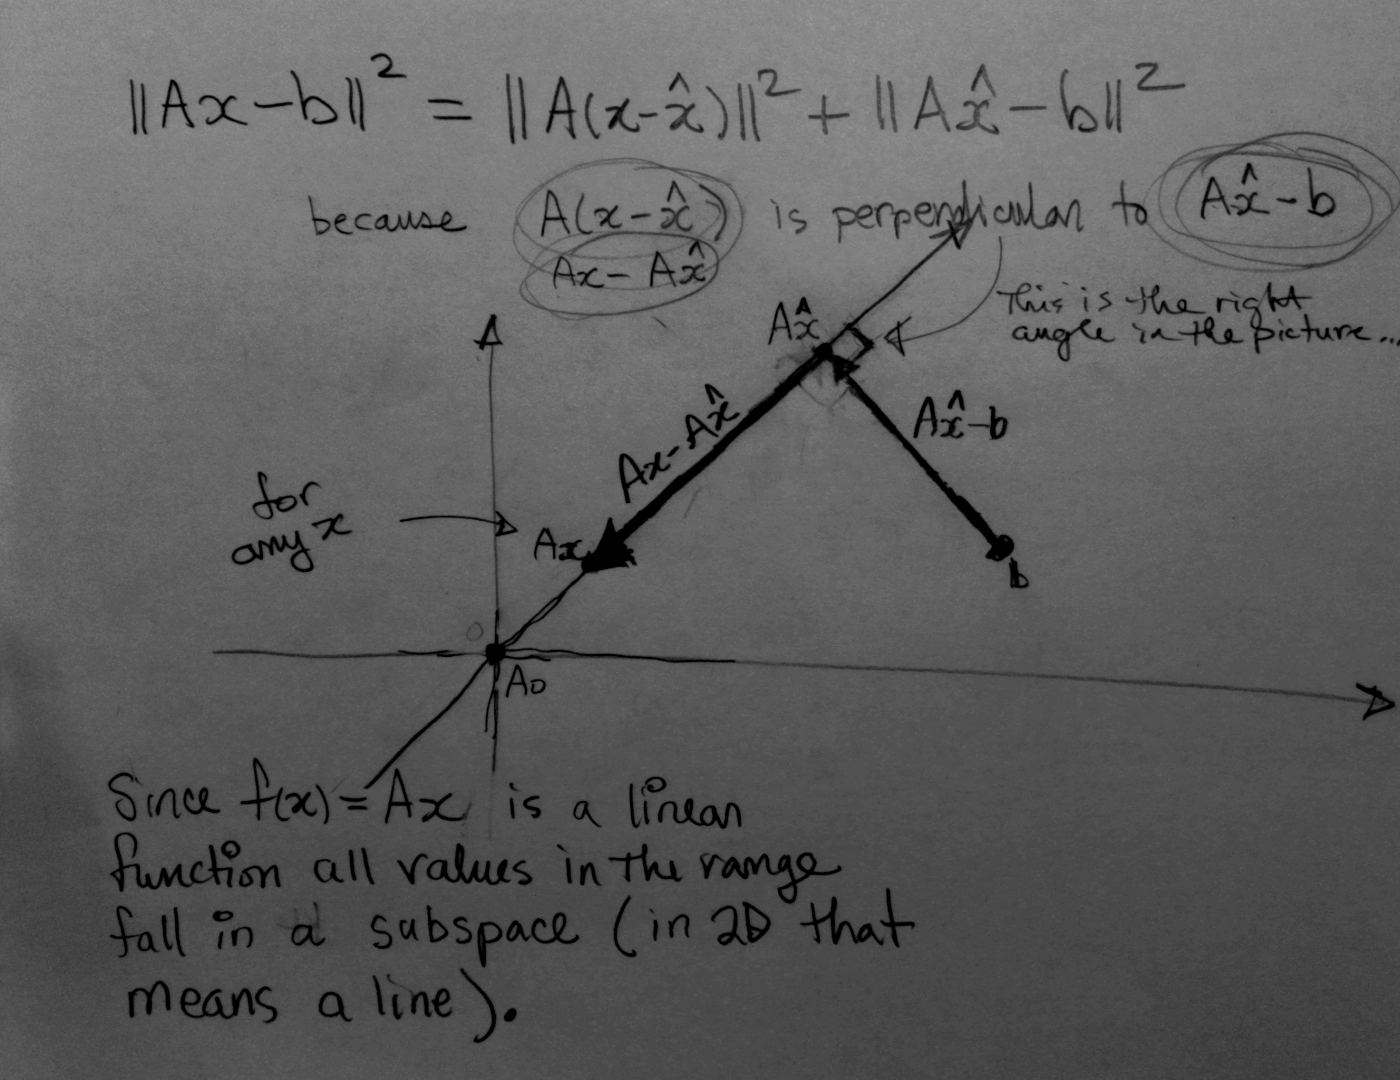 ||Ax-b||² = ||A(x-x̂)||² + ||Ax̂-b||²
because A(x-x̂) is perpendicular to Ax̂-b
Ax - Ax̂
This is the right
angle in the picture...
Ax̂
Ax-Ax̂
Ax̂-b
for
any x
Ax
b
0
A0
Since f(x)=Ax is a linear
function all values in the range
fall in a subspace (in 2D that
means a line).